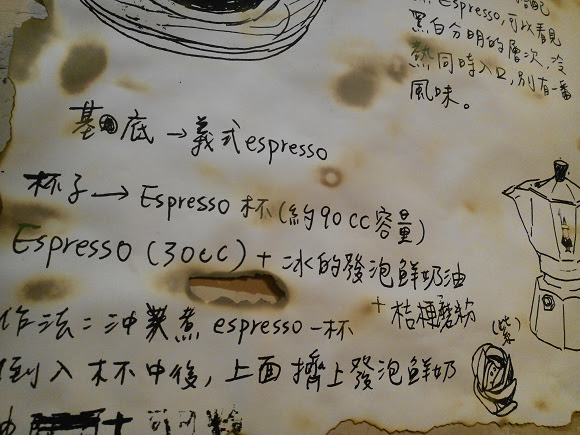 Espresso,可以看見
黑白分明的層次,冷
熱同時入口,別有一番
風味。
基底→義式espresso
杯子→Espresso杯(約90cc容量)
Espresso(30cc)+冰的發泡鮮奶油
+桔梗磨粉
(紫)
作法:沖煮espresso一杯
倒入杯中後,上面擠上發泡鮮奶
油